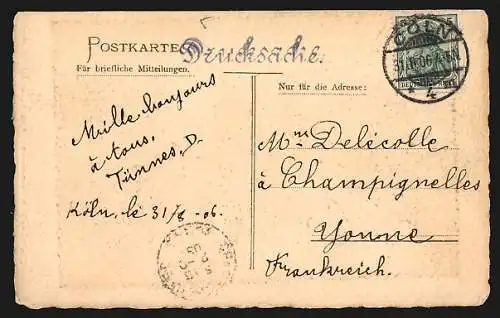 POSTKARTE
Drucksache.
Für briefliche Mitteilungen.
Nur für die Adresse:
CÖLN
k
Mille bonjours
à tous.
Tünnes. D.
Köln, le 31/8 06.
Mme Delécolle
à Champignelles
Yonne
Frankreich.